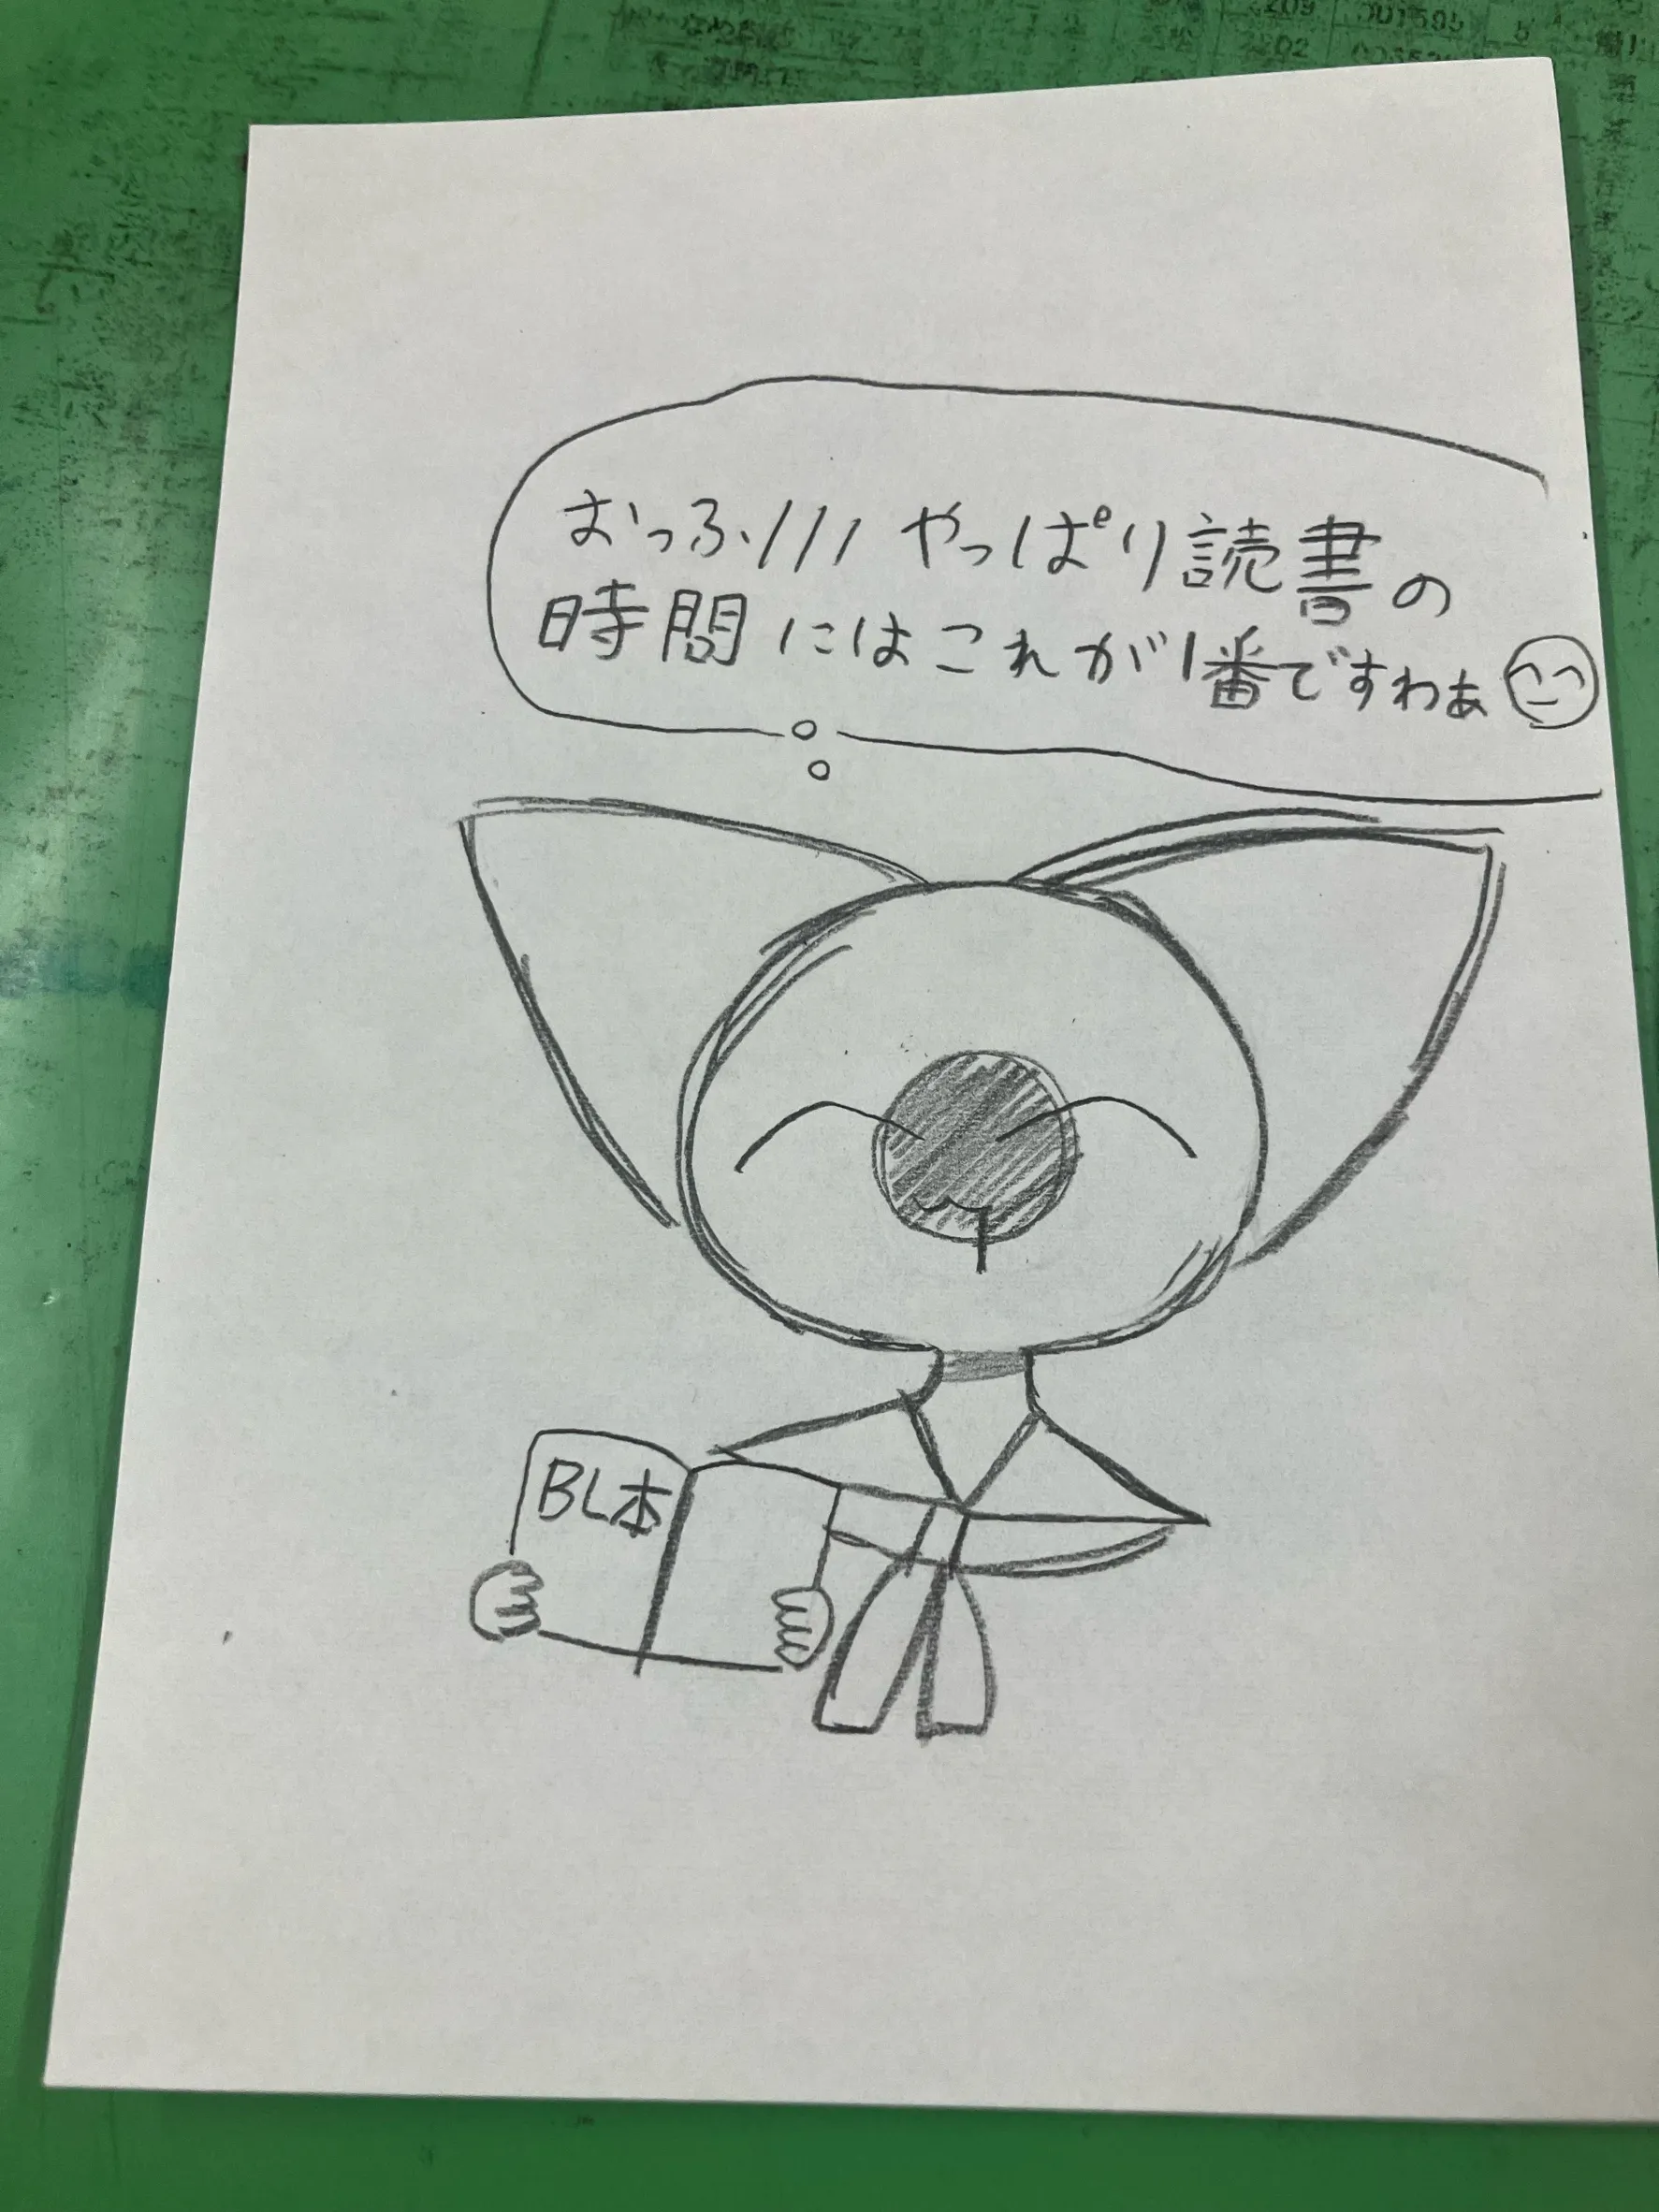 おっふ///やっぱり読書の
時間にはこれが1番ですわぁ
BL本